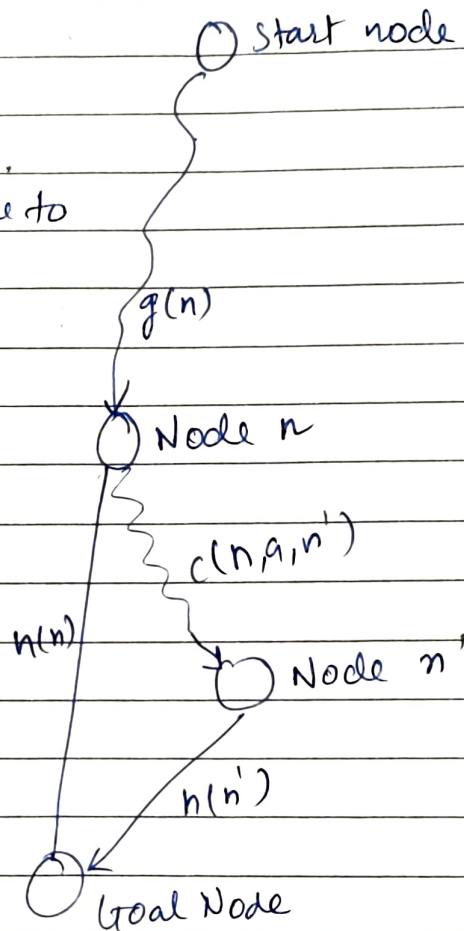 Start node
e to
g(n)
Node n
c(n,a,n')
h(n)
Node n'
h(n')
Goal Node